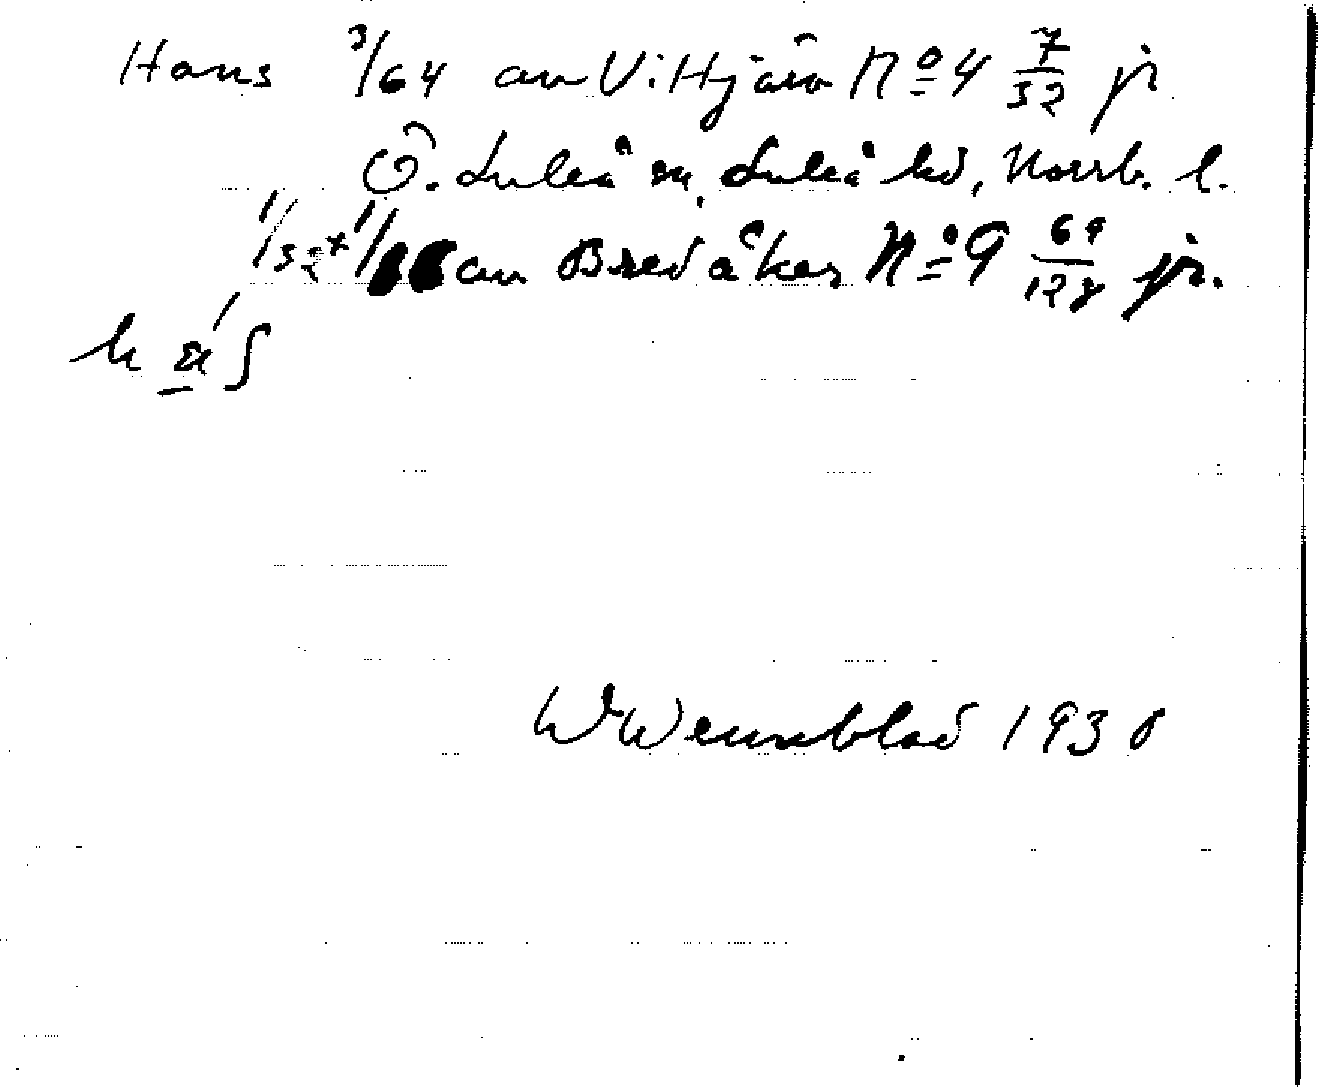 Hans 3/64 av Vittjärv No 4 7/32 jr
Ö. Luleå sn, Luleå hd, Norrb. l.
1/32 + 1/ av Bredåker No 9 69/128 jr.
W Wennblad 1930